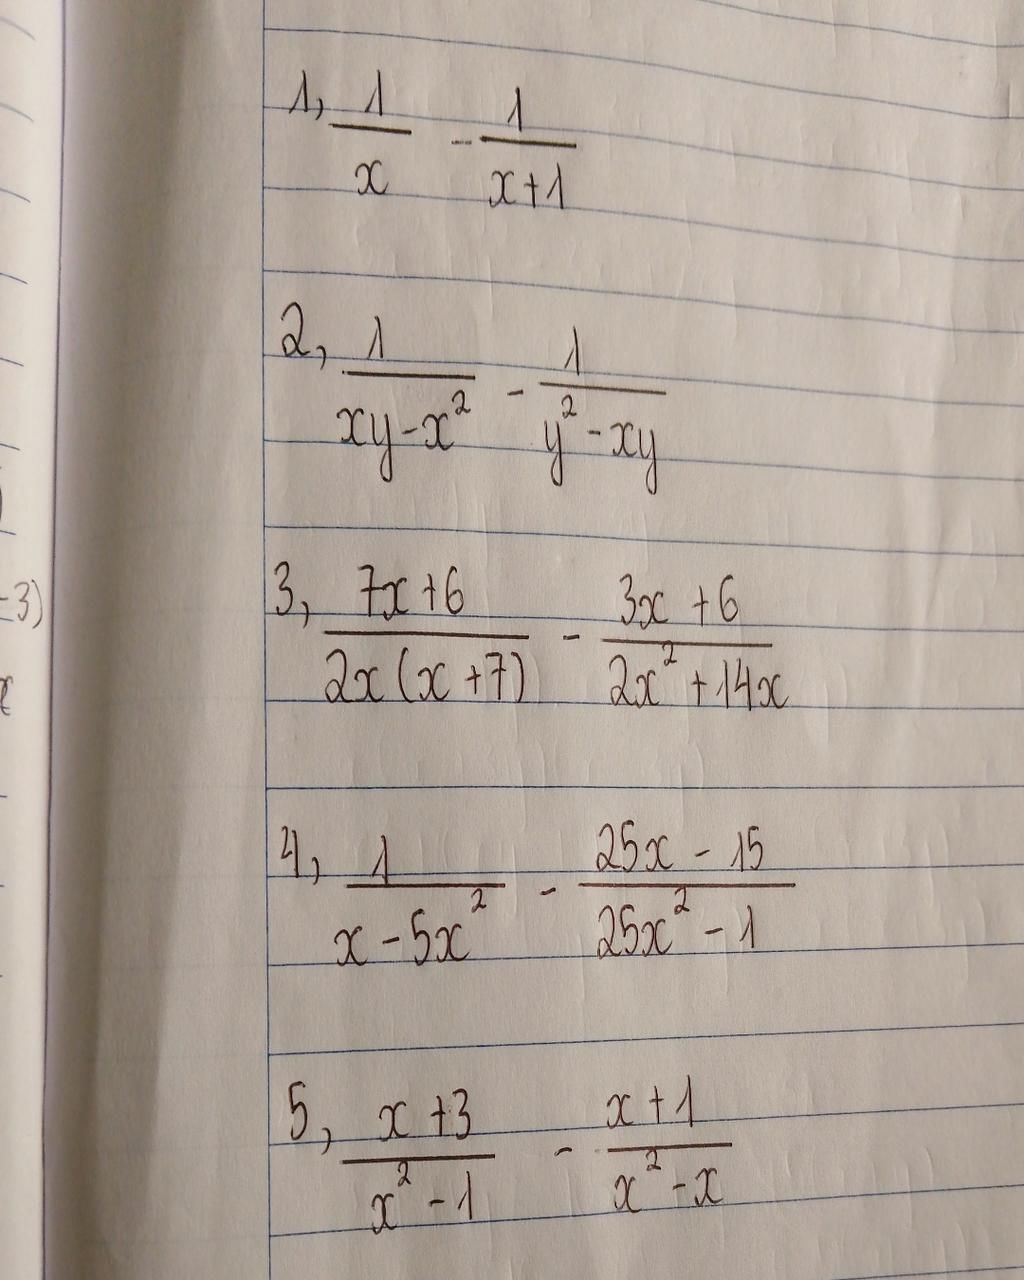 1, 1/x - 1/(x+1)
2, 1/(xy-x²) - 1/(y²-xy)
3, (7x+6)/(2x(x+7)) - (3x+6)/(2x²+14x)
-3)
x
4, 1/(x-5x²) - (25x-15)/(25x²-1)
5, (x+3)/(x²-1) - (x+1)/(x²-x)